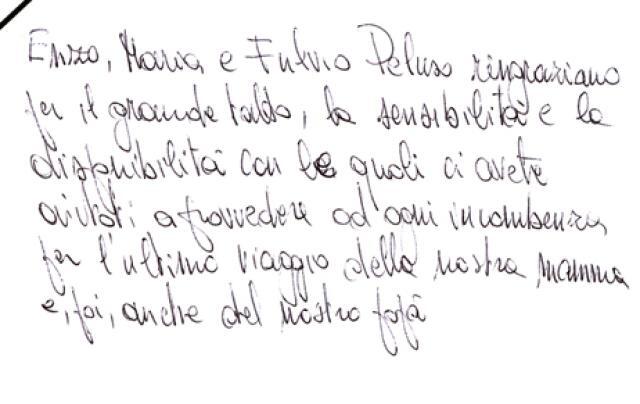 Enzo, Maria e Fulvio Peluso ringraziano
per il grande tatto, la sensibilità e la
disponibilità con le quali ci avete
aiutati a provvedere ad ogni incombenza
per l'ultimo viaggio della nostra mamma
e, poi, anche del nostro papà